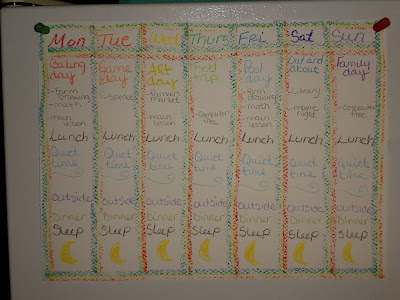 Mon Tue Wed Thurs Fri Sat Sun
Baking day
- form drawing
- math
- main lesson
Lunch
Quiet time
outside
Dinner
Sleep
Game day
- Science
Lunch
Quiet time
outside
Dinner
Sleep
ART day
- farmers market
- main lesson
Lunch
Quiet time
outside
Dinner
Sleep
Field trip
- computer free
Lunch
Quiet time
outside
Dinner
Sleep
Pool day
- form drawing
- math
- main lesson
Lunch
Quiet time
outside
Dinner
Sleep
Out and about
- Library
- movie night
Lunch
Quiet time
outside
Dinner
Sleep
Family day
- computer free
Lunch
Quiet time
outside
Dinner
Sleep